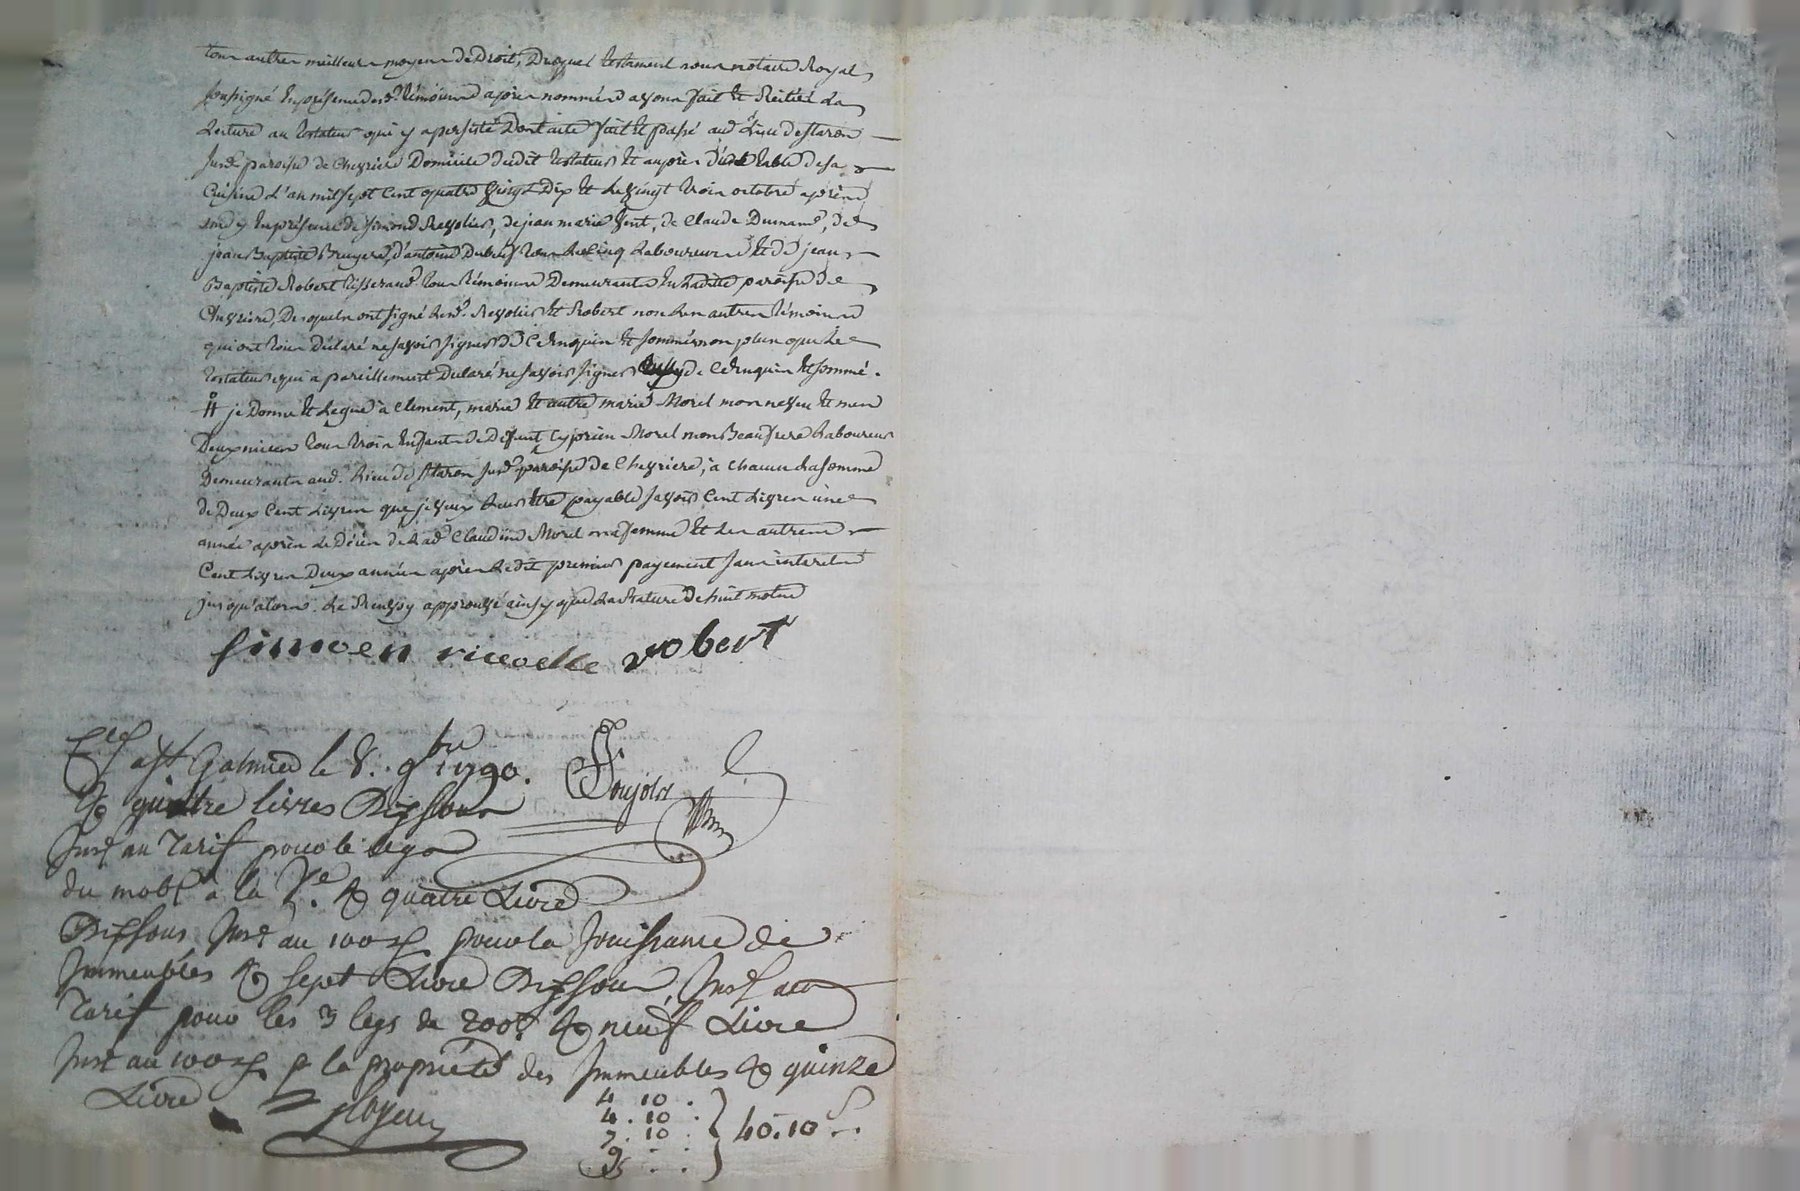 tour autre meilleur moyen de Droit, Duquel testament nous notaire Royal
soussigné En présence des témoins après nommés avons fait et Réitéré la
Lecture au testateur qui y a persisté Dont acte fait et passé aud. Lieu de
susd. paroisse de Chevrière Domicile dudit testateur et auprès d'une table de sa
Cuisine L'an mil sept Cent quatre Vingt Dix et le vingt trois octobre après
midy En présence de Simond Revolier, de jean marie Vent, de Claude, de
jean Baptiste Bruyere, d'antoine Dubeuf tous les Cinq Laboureurs et de jean
Baptiste Robert tisserand tous témoins Demeurants En Ladite paroisse de
Chevrière, Desquels ont signé lesd. Revolier et Robert non les autres témoins
qui ont tous Déclaré ne savoir signer de Ce Enquis et sommés non plus que le
testateur qui a pareillement Declaré ne savoir signer de Ce Enquis et sommé.
# je Donne et Legue à Clement, marie et autre marie Morel mon neveu et mes
Deux nieces tous trois Enfants de Défunt Cyprien Morel mon Beaufrere Laboureur
Demeurants aud. Lieu de susd. paroisse de Chevriere, à chacun la somme
de Deux Cent Livres que je veux Leur être payable savoir Cent Livres une
année après le Décès de lad. Claudine Morel ma femme et les autres
Cent Livres Deux années après ledit premier payement sans interets
jusqu'alors. Le Renvoy approuvé ainsy que la Rature de huit mots
simoen ricvolle robert
à St Galmier le 8. 9bre 1790.
R quatre livres Dix sous
Sur au Tarif pour le legs
du mob. à la Ve. R quatre Livre
Dix sous au 100e pour la Jouissance de
Immeubles R sept Livre Dix sous, au
Tarif pour les 3 legs de 200 R neuf Livre
au 100e p la propriété des Immeubles R quinze
Livre
4. 10.
4. 10.
7. 10.
40. 10 s.